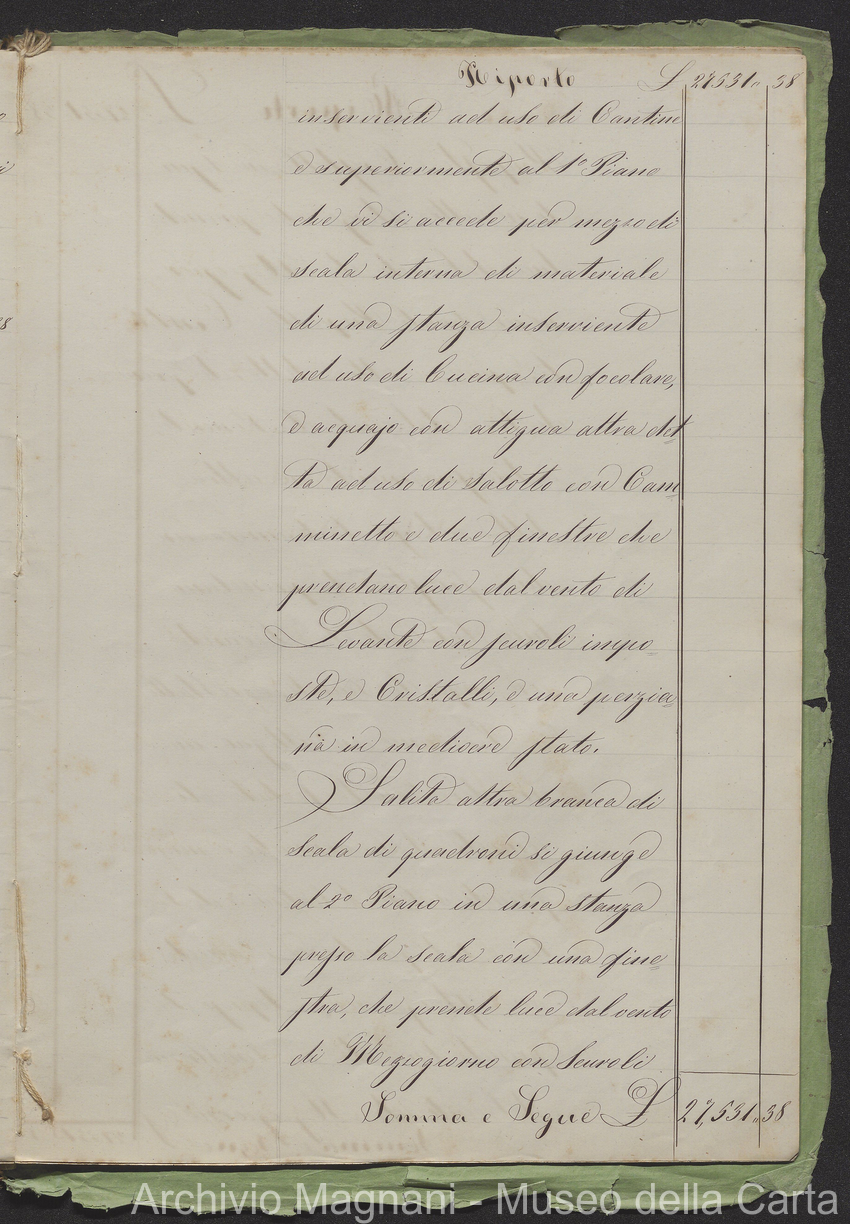 Riporto £ 27531„ 38
inservienti ad uso di Cantine
e superiormente al 1º Piano
che vi si accede per mezzo di
scala interna di materiale
di una stanza inserviente
ad uso di Cucina con focolare,
e acquajo con attigua altra det
ta ad uso di Salotto con Cam
minetto e due finestre che
prendano luce dal vento di
Levante con scuroli impo=
ste, e Cristalli, e una perzia=
na in mediocre stato.
Salita altra branca di
Scala di quadroni si giunge
al 2º Piano in una stanza
presso la scala con una fine=
stra, che prende luce dal vento
di Mezzogiorno con Scuroli
Somma e Segue £ 27,531„ 38
Archivio Magnani - Museo della Carta